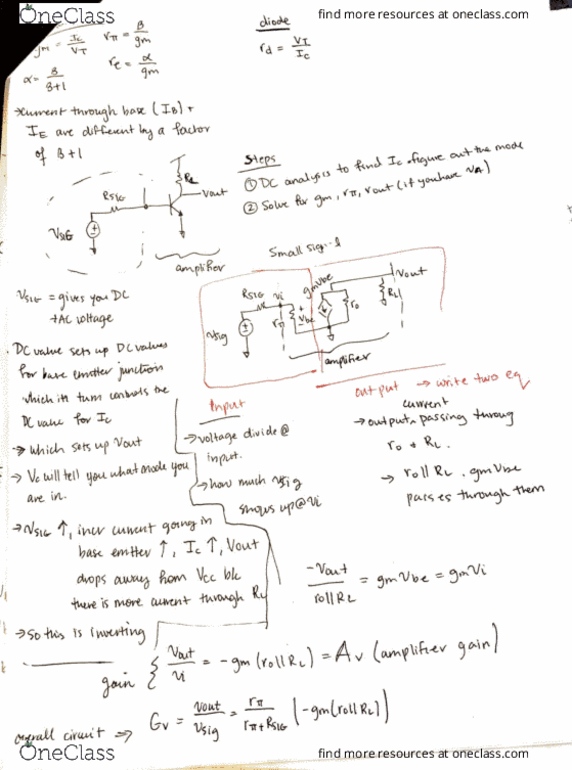 OneClass
find more resources at oneclass.com
diode
gm = Ic/VT
rπ = B/gm
rd = VT/Ic
α = B/B+1
re = α/gm
→ current through base (IB) +
IE are different by a factor
of B+1
Steps
① DC analysis to find Ic. figure out the mode
② Solve for gm, rπ, rout (if you have VA)
RL
RSIG
Vout
VSIG
amplifier
Small sig
VSIG = gives you DC
+AC voltage
RSIG
vi
gmVbe
Vout
Vsig
rπ
+
Vbe
-
ro
RL
amplifier
DC value sets up DC values
for base emitter junction
which in turn controls the
DC value for Ic
→ which sets up Vout
→ Vc will tell you what mode you
are in.
→ VSIG ↑, incr current going in
base emitter ↑, Ic ↑, Vout
drops away from Vcc b/c
there is more current through RL
→ So this is inverting
Input
→ voltage divide @
input.
→ how much vsig
shows up @ Vi
output → write two eq
current
→ output passing throug
ro + RL.
→ ro||RL . gmVbe
passes through them
-Vout/ro||RL = gmVbe = gmVi
gain { Vout/Vi = -gm(ro||RL) = Av (amplifier gain)
overall circuit ⇒ Gv = Vout/Vsig = rπ/rπ+RSIG (-gm(ro||RL))
OneClass
find more resources at oneclass.com